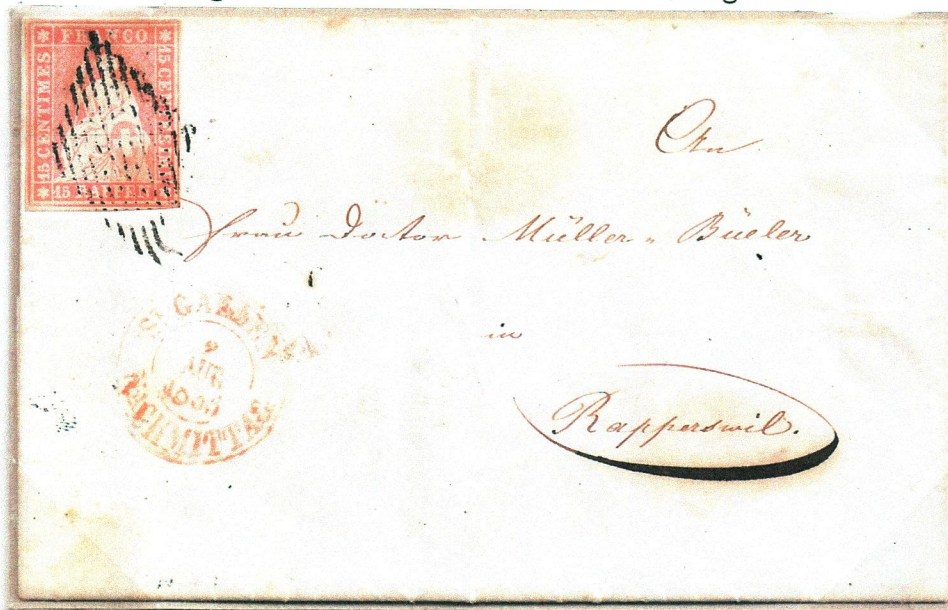 FRANCO
15 CENTIMES
15 CENTESIMI
15 RAPPEN
An
Frau Doctor Müller-Büeler
in
Rapperswil.
St GALLEN
2
AUG
NACHMITTAG